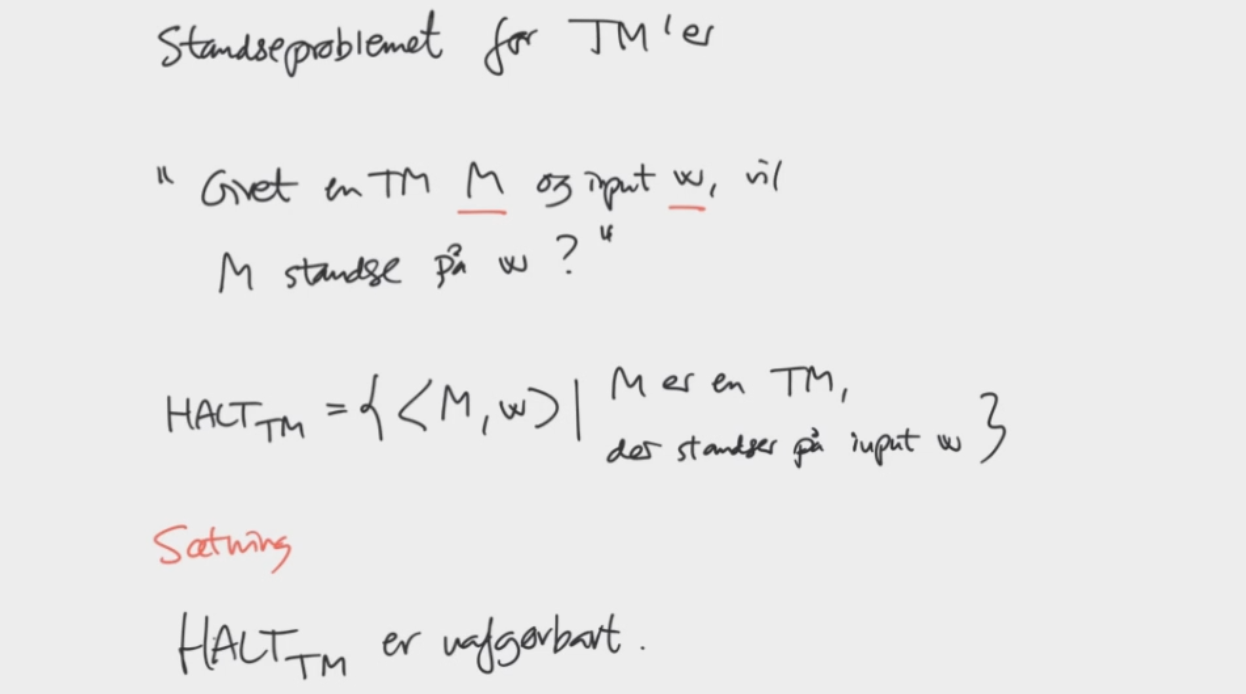 Standseproblemet for TM'er
"Givet en TM M og input w, vil
M standse på w ?"
HALT_TM = { <M, w> | M er en TM,
der standser på input w }
Sætning
HALT_TM er uafgørbart.